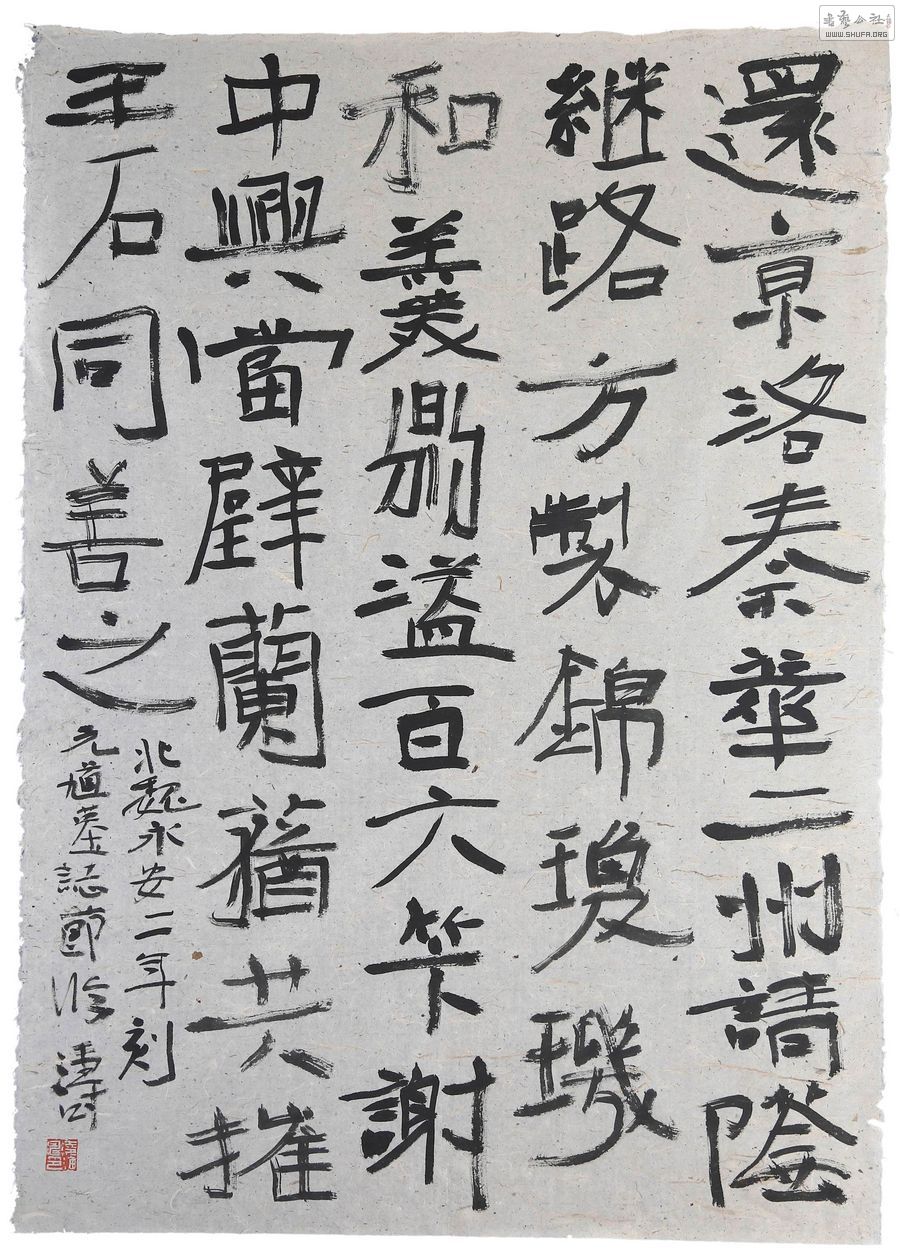 還京洛秦華二州請
継路方製錦瓊璣
和羹鼎溢百六笇謝
中興當辟蘭蕕共摧
王石同善之
北魏永安二年刻
元墓誌節臨
書藝公社
WWW.SHUFA.ORG